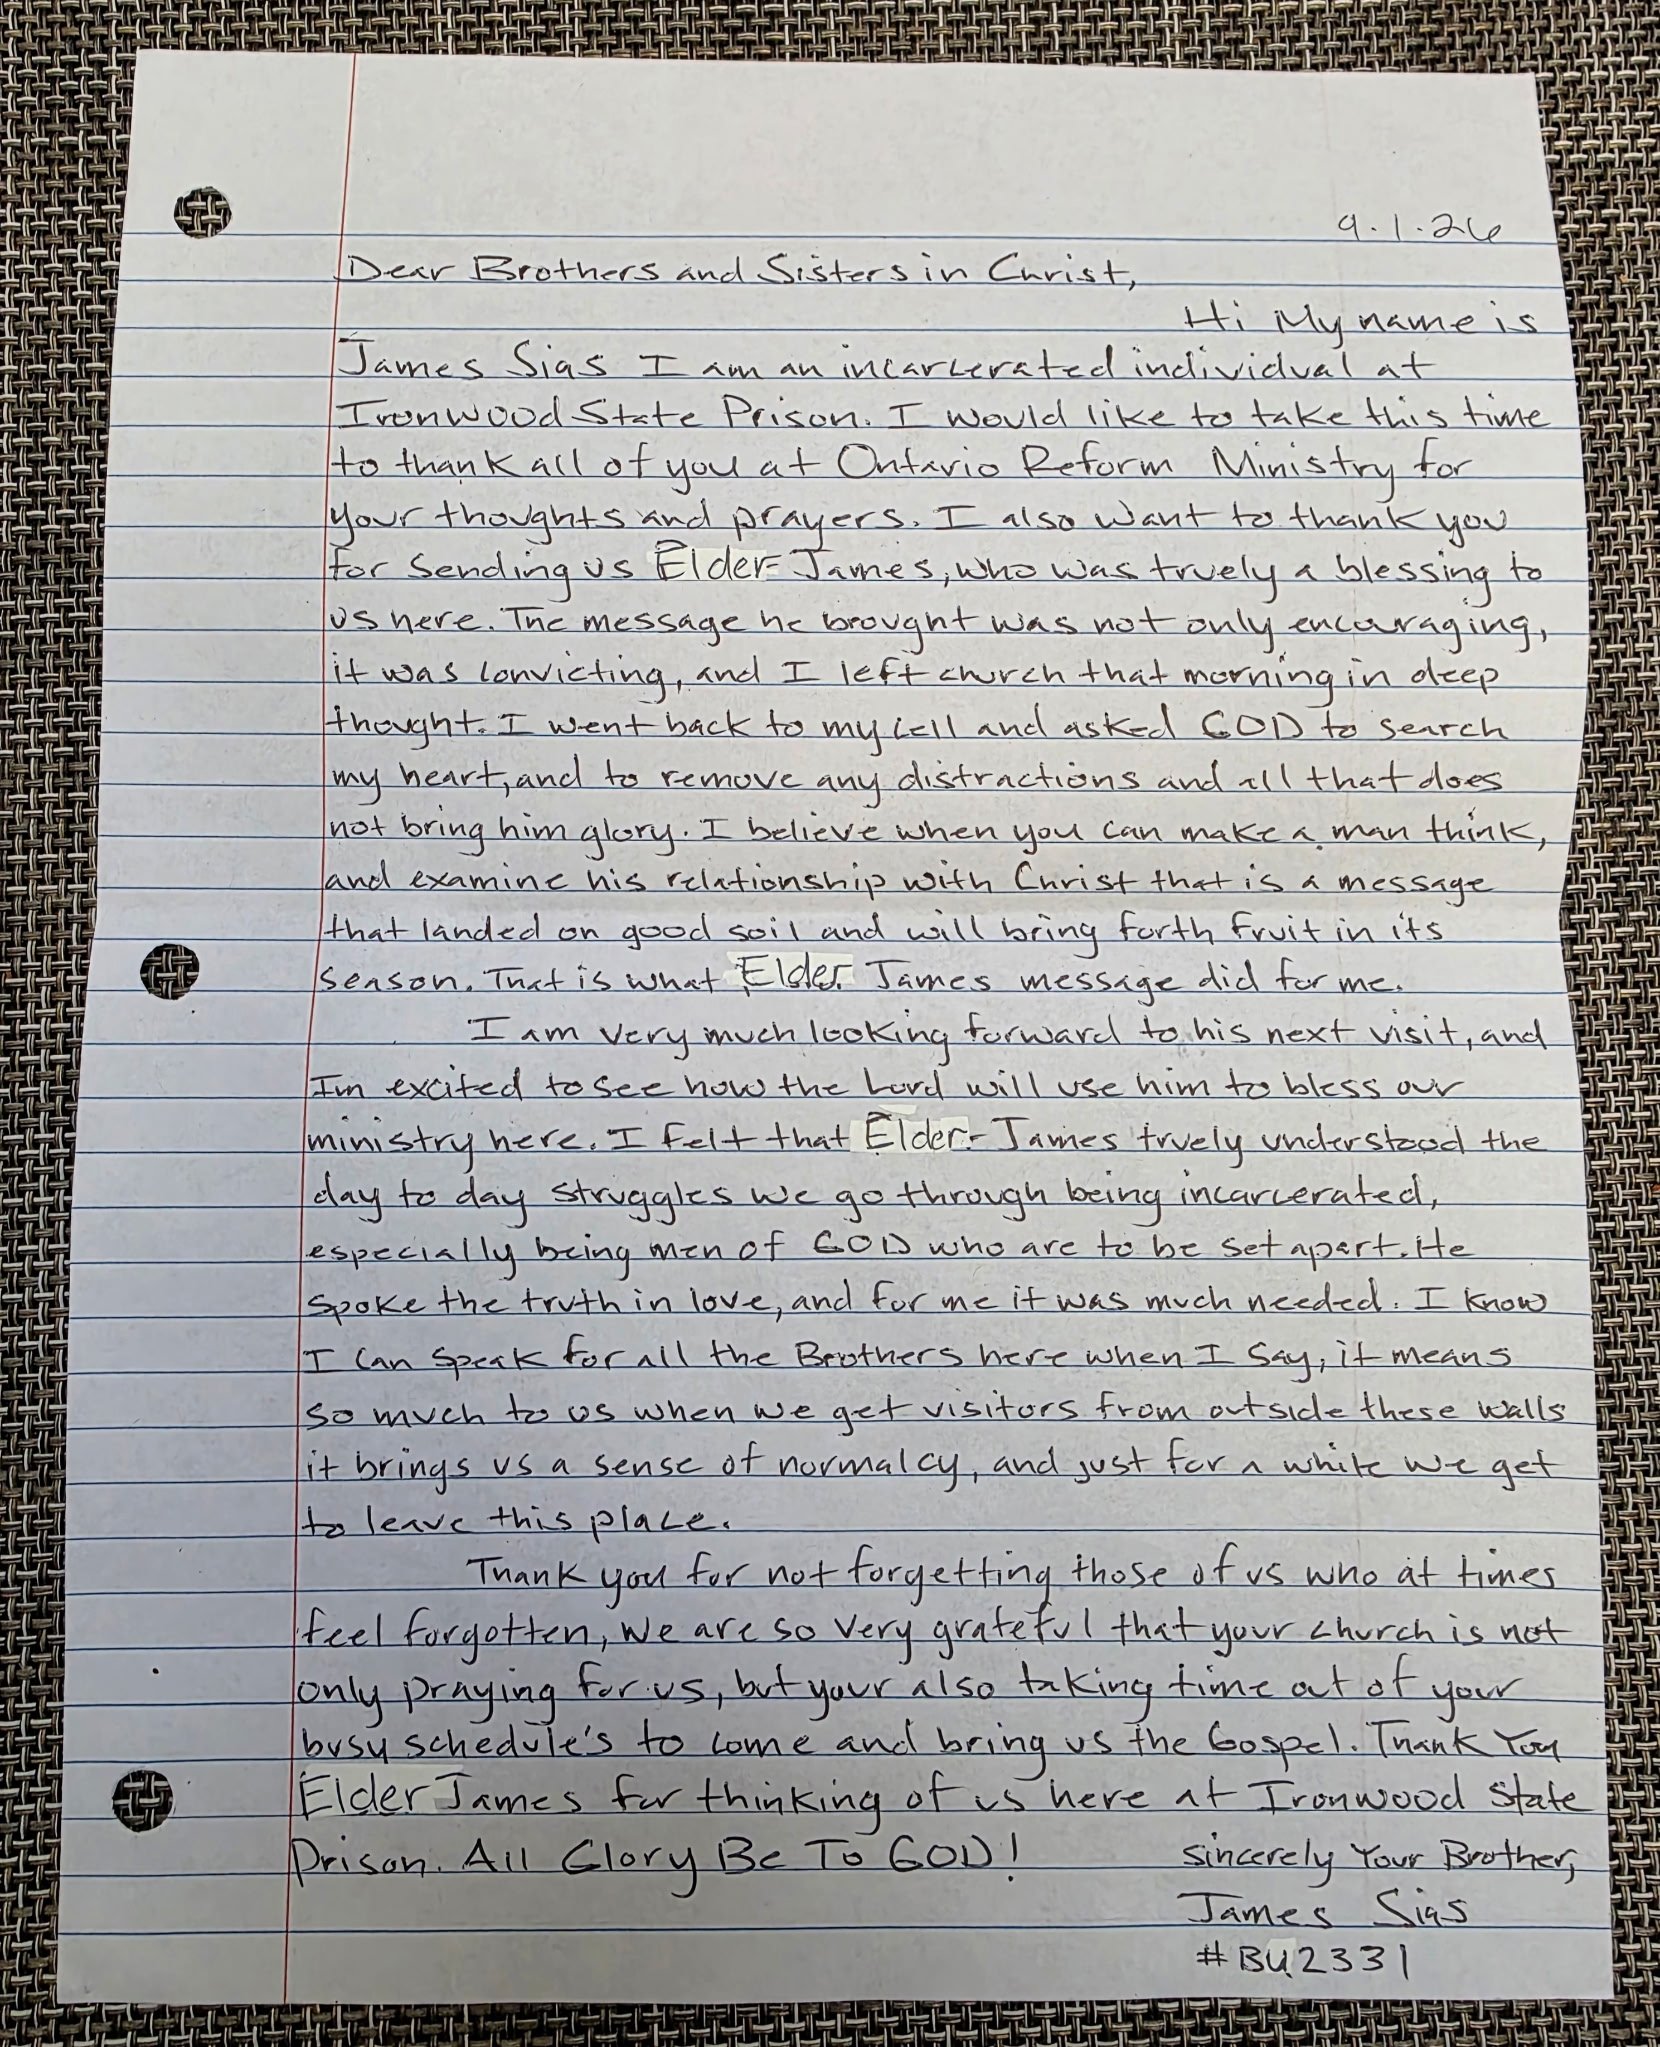 9.1.26
Dear Brothers and Sisters in Christ,
Hi My name is
James Sias I am an incarcerated individual at
Ironwood State Prison. I would like to take this time
to thank all of you at Ontario Reform Ministry for
your thoughts and prayers. I also want to thank you
for sending us Elder- James, who was truely a blessing to
us here. The message he brought was not only encouraging,
it was convicting, and I left church that morning in deep
thought. I went back to my cell and asked GOD to search
my heart, and to remove any distractions and all that does
not bring him glory. I believe when you can make a man think,
and examine his relationship with Christ that is a message
that landed on good soil and will bring forth fruit in its
season. That is what Elder. James message did for me.
I am very much looking forward to his next visit, and
Im excited to see how the Lord will use him to bless our
ministry here. I felt that Elder- James truely understood the
day to day struggles we go through being incarcerated,
especially being men of GOD who are to be set apart. He
spoke the truth in love, and for me it was much needed. I know
I can speak for all the Brothers here when I say, it means
so much to us when we get visitors from outside these walls
it brings us a sense of normalcy, and just for a while we get
to leave this place.
Thank you for not forgetting those of us who at times
feel forgotten, we are so very grateful that your church is not
only praying for us, but your also taking time out of your
busy schedule's to come and bring us the Gospel. Thank You
Elder James for thinking of us here at Ironwood State
Prison. All Glory Be To GOD!
Sincerely Your Brother,
James Sias
#BU2331